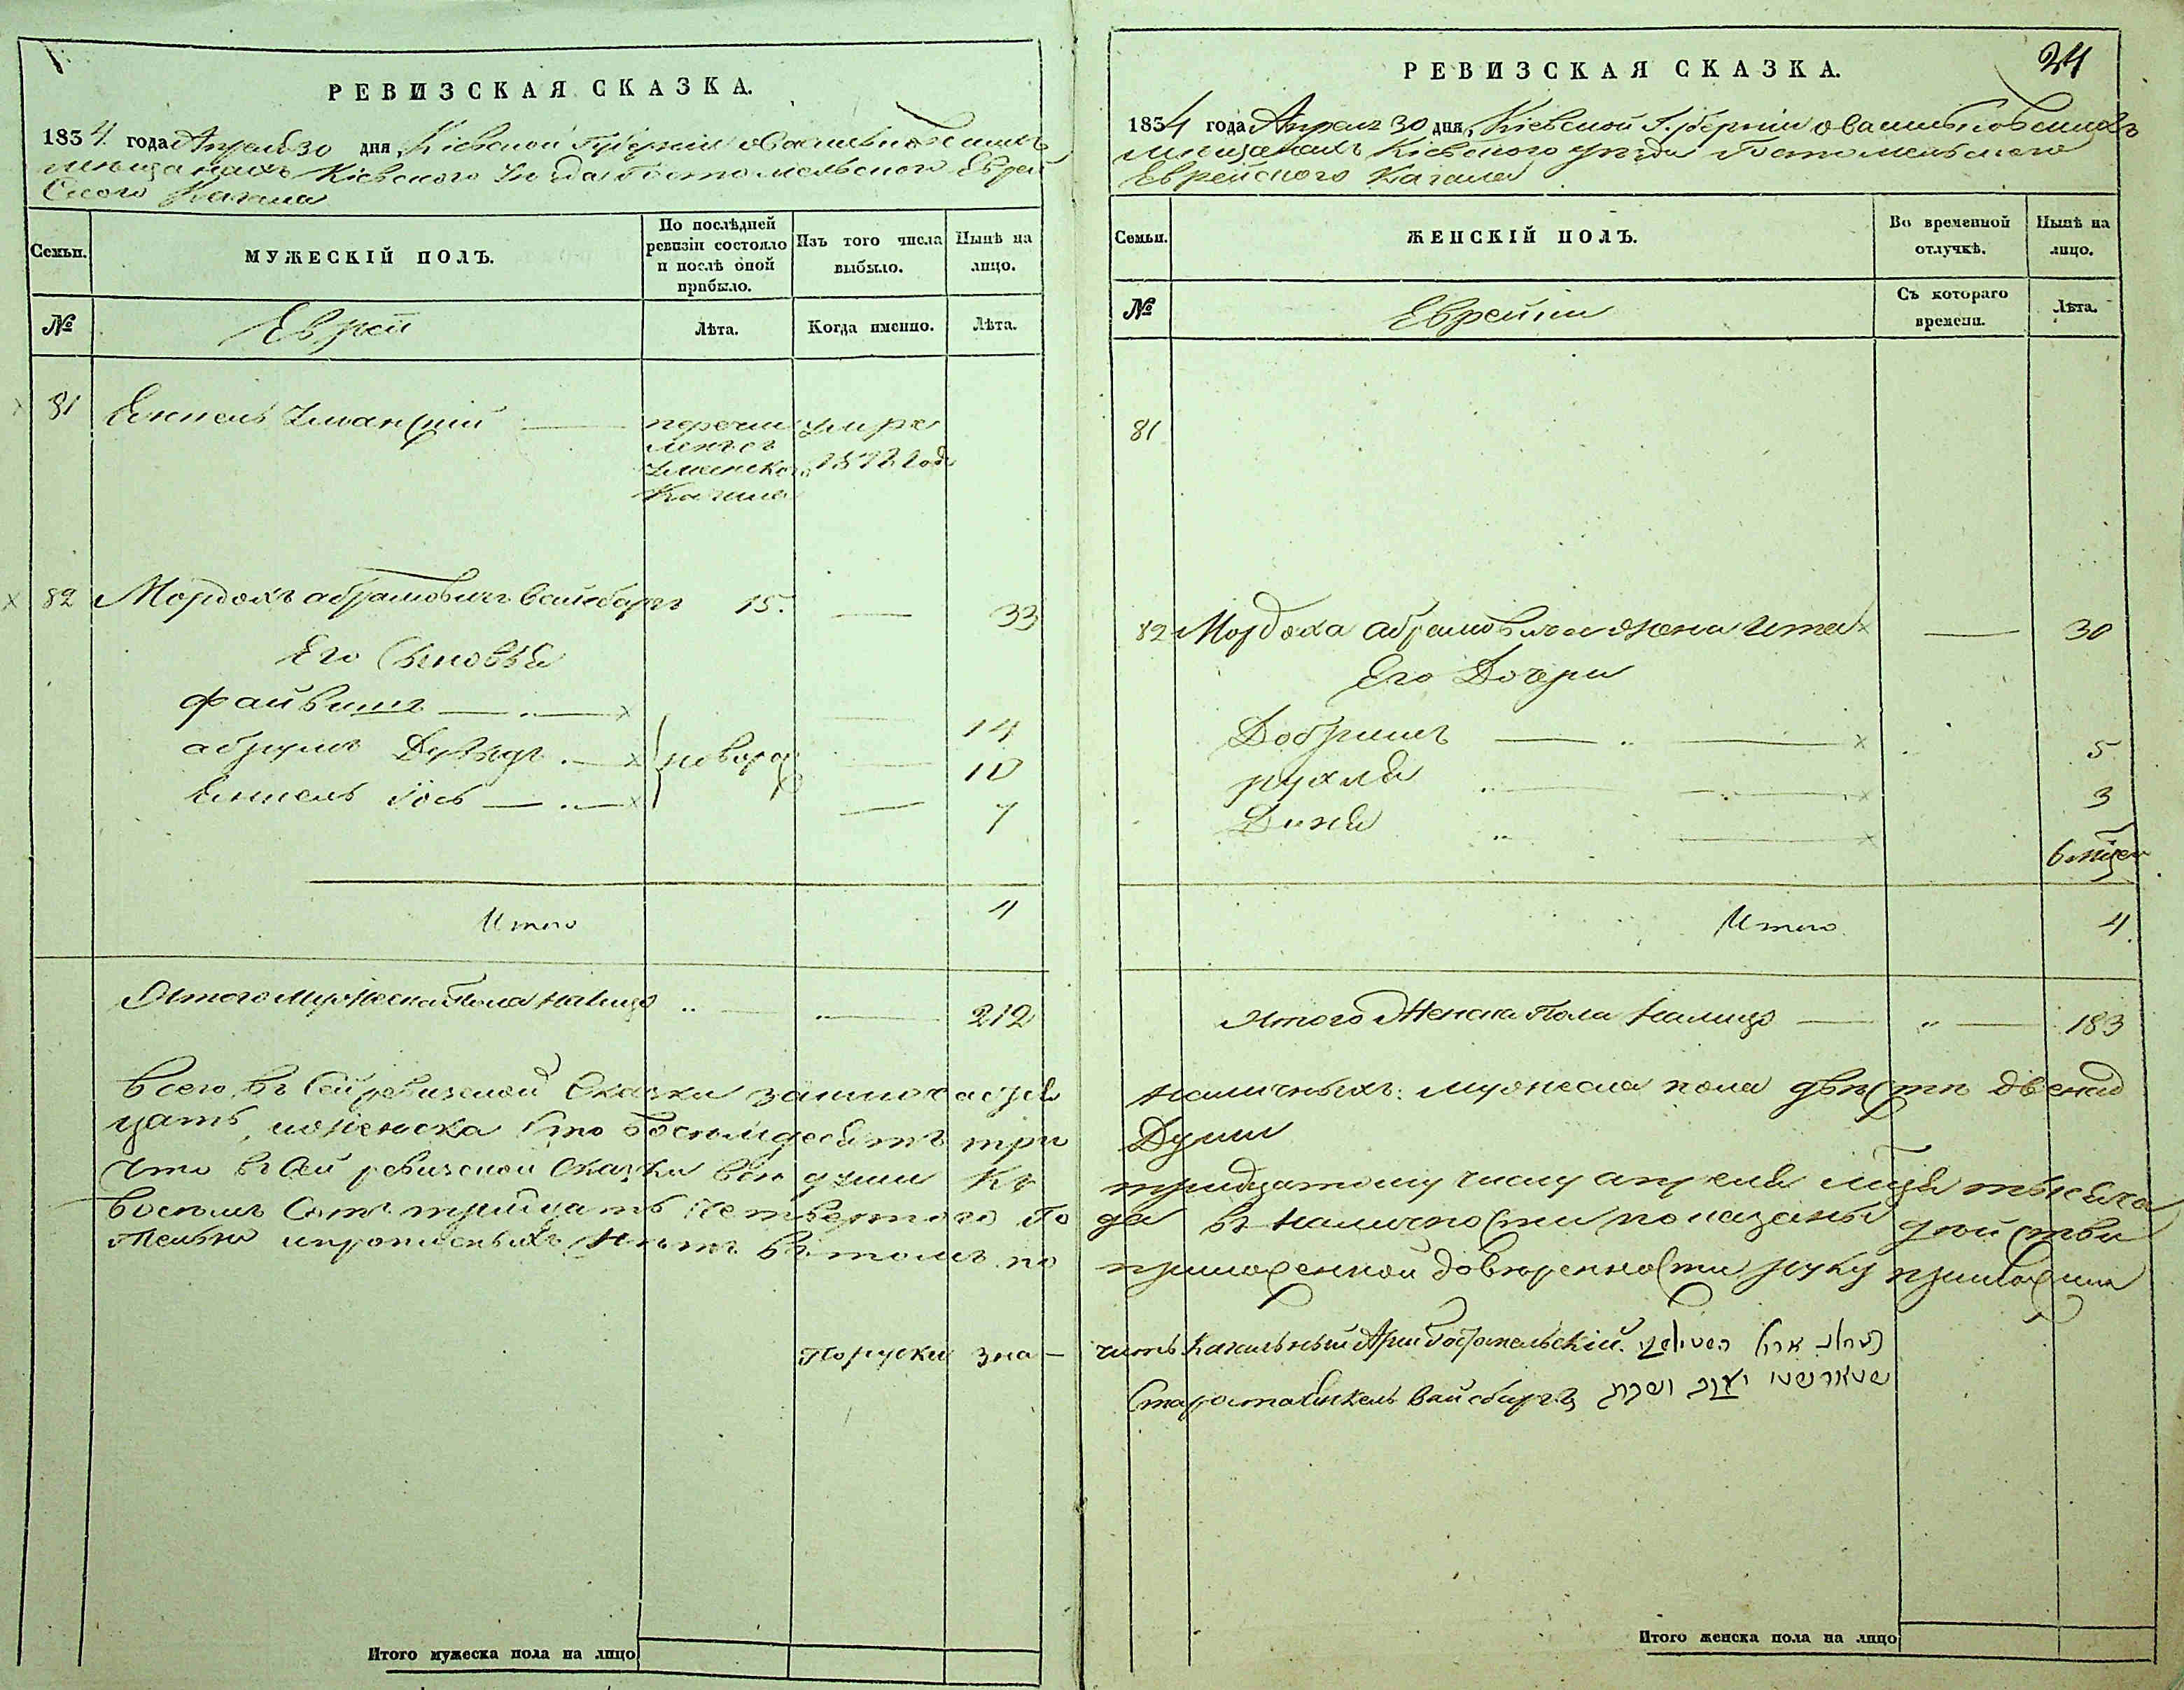 РЕВИЗСКАЯ СКАЗКА.
1834 года Апреля 30 дня, Кіевской Губерніи о Васильковскихъ
мещанахъ Кіевского Уезда Гостомельского Еврей
ского Кагала
Семьи.
МУЖЕСКІЙ ПОЛЪ.
По послѣдней ревизіи состояло и послѣ оной прибыло.
Изъ того числа выбыло.
Нынѣ на лицо.
№
Еврей
Лѣта.
Когда именно.
Лѣта.
81 Енкель Уманскій — перечи умре
ленъ съ
Уманско 1832 года
Кагала
82 Мордохъ абрамовичъ Вайсбаргъ 15. — 33
Его Сыновья
файвишъ — 14
абрумъ Дувидъ — новоро — 10
Енкель Іось — 7
Итого 4
Итого Мужеска Пола налицо 212
всего въ сей ревизской сказки
цать, и женска сто восемьдесятъ три
что въ сей ревизской сказки все души къ
восемь сотъ тридцать четвертого Го
и прописныхъ нетъ въ томъ по
По руски зна—
Итого мужеска пола на лицо
24
РЕВИЗСКАЯ СКАЗКА.
1834 года Апреля 30 дня, Кіевской Губерніи о Васильковскихъ
мещанахъ Кіевского уезда Гостомельского
Еврейского Кагала
Семьи.
ЖЕНСКІЙ ПОЛЪ.
Во временной отлучкѣ.
Нынѣ на лицо.
№
Еврейки
Съ котораго времени.
Лѣта.
81
82 Мордоха абрамовича жена Ита — 30
Его Дочери
Добришъ — 5
рухля — 3
Диня — 6 мѣсец
Итого 4
Итого Женска Пола налицо — 183
наличныхъ: мужеска пола двѣсти двенад
Души
тридцатому числу апреля мѣсяца тысяча
да въ наличности показаны
приложенной доверенности руку приложили
читъ Кагальный Арій Гостомельскій.
Староста Енкель Вайсбаргъ
Итого женска пола на лицо